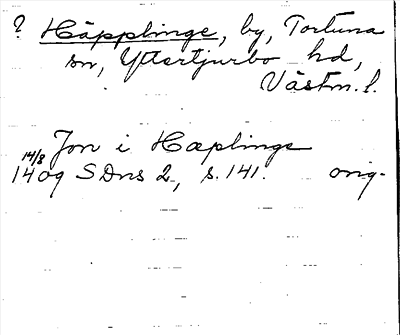 ? Häpplinge, by, Tortuna
sn, Yttertjurbo hd,
Västm. l.
Jon i Hæplinge
14/8
1409 SDns 2, s. 141. orig.